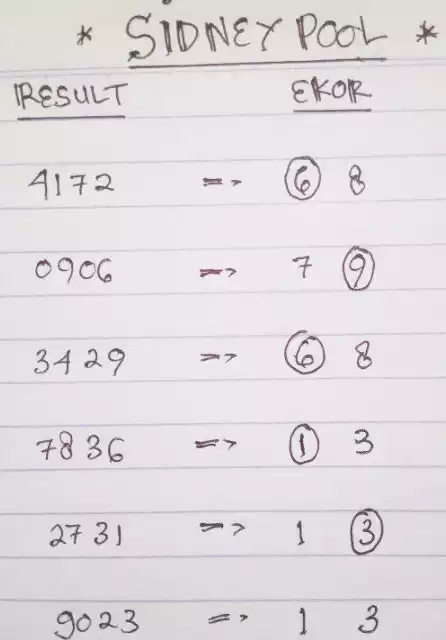 * SIDNEY POOL *
RESULT EKOR
4172 => 6 8
0906 => 7 9
3429 => 6 8
7836 => 1 3
2731 => 1 3
9023 => 1 3